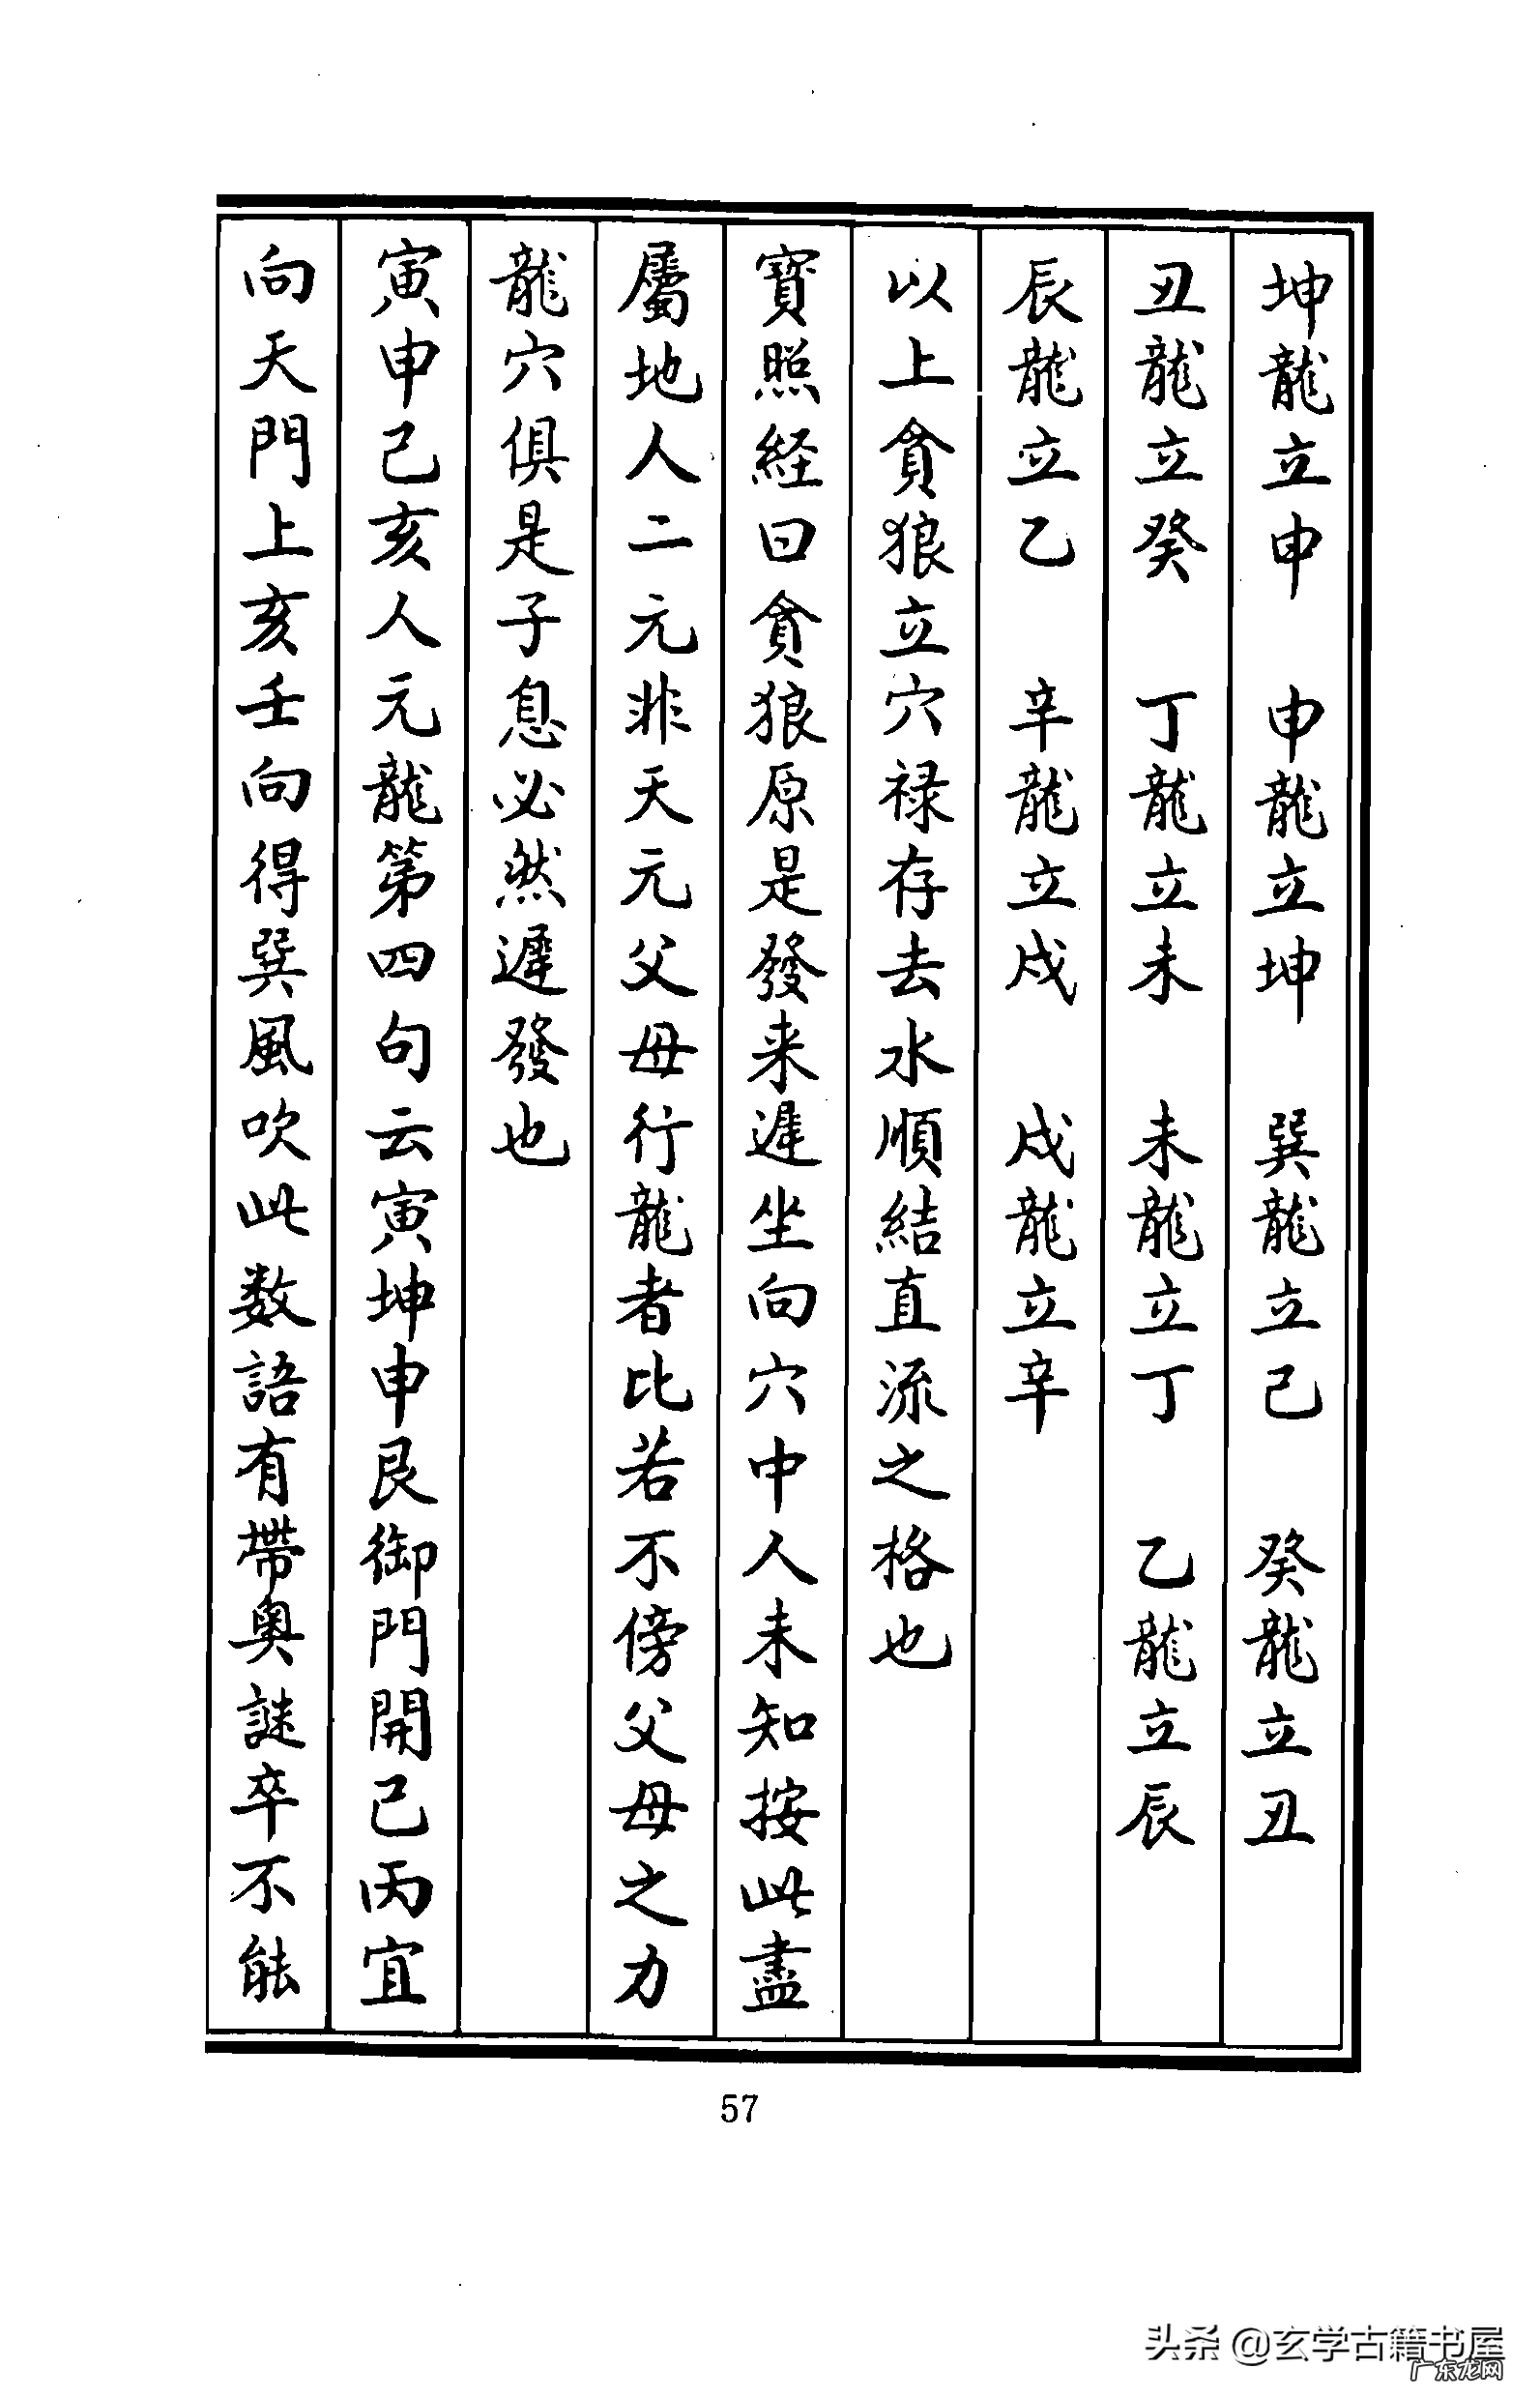 坤龍立申　申龍立坤　巽龍立己　癸龍立丑
丑龍立癸　丁龍立未　未龍立丁　乙龍立辰
辰龍立乙　辛龍立戍　戍龍立辛
以上貪狼立穴禄存去水順結直流之格也
寳照経曰貪狼原是發来遲坐向穴中人未知按此盡
屬地人二元非天元父母行龍者比若不傍父母之力
龍穴俱是子息必然遲發也
寅申己亥人元龍第四句云寅坤申艮御門開己丙宜
向天門上亥壬向得巽風吹此数語有帶奥謎卒不能
57
头条 @玄学古籍书屋
广东龙网